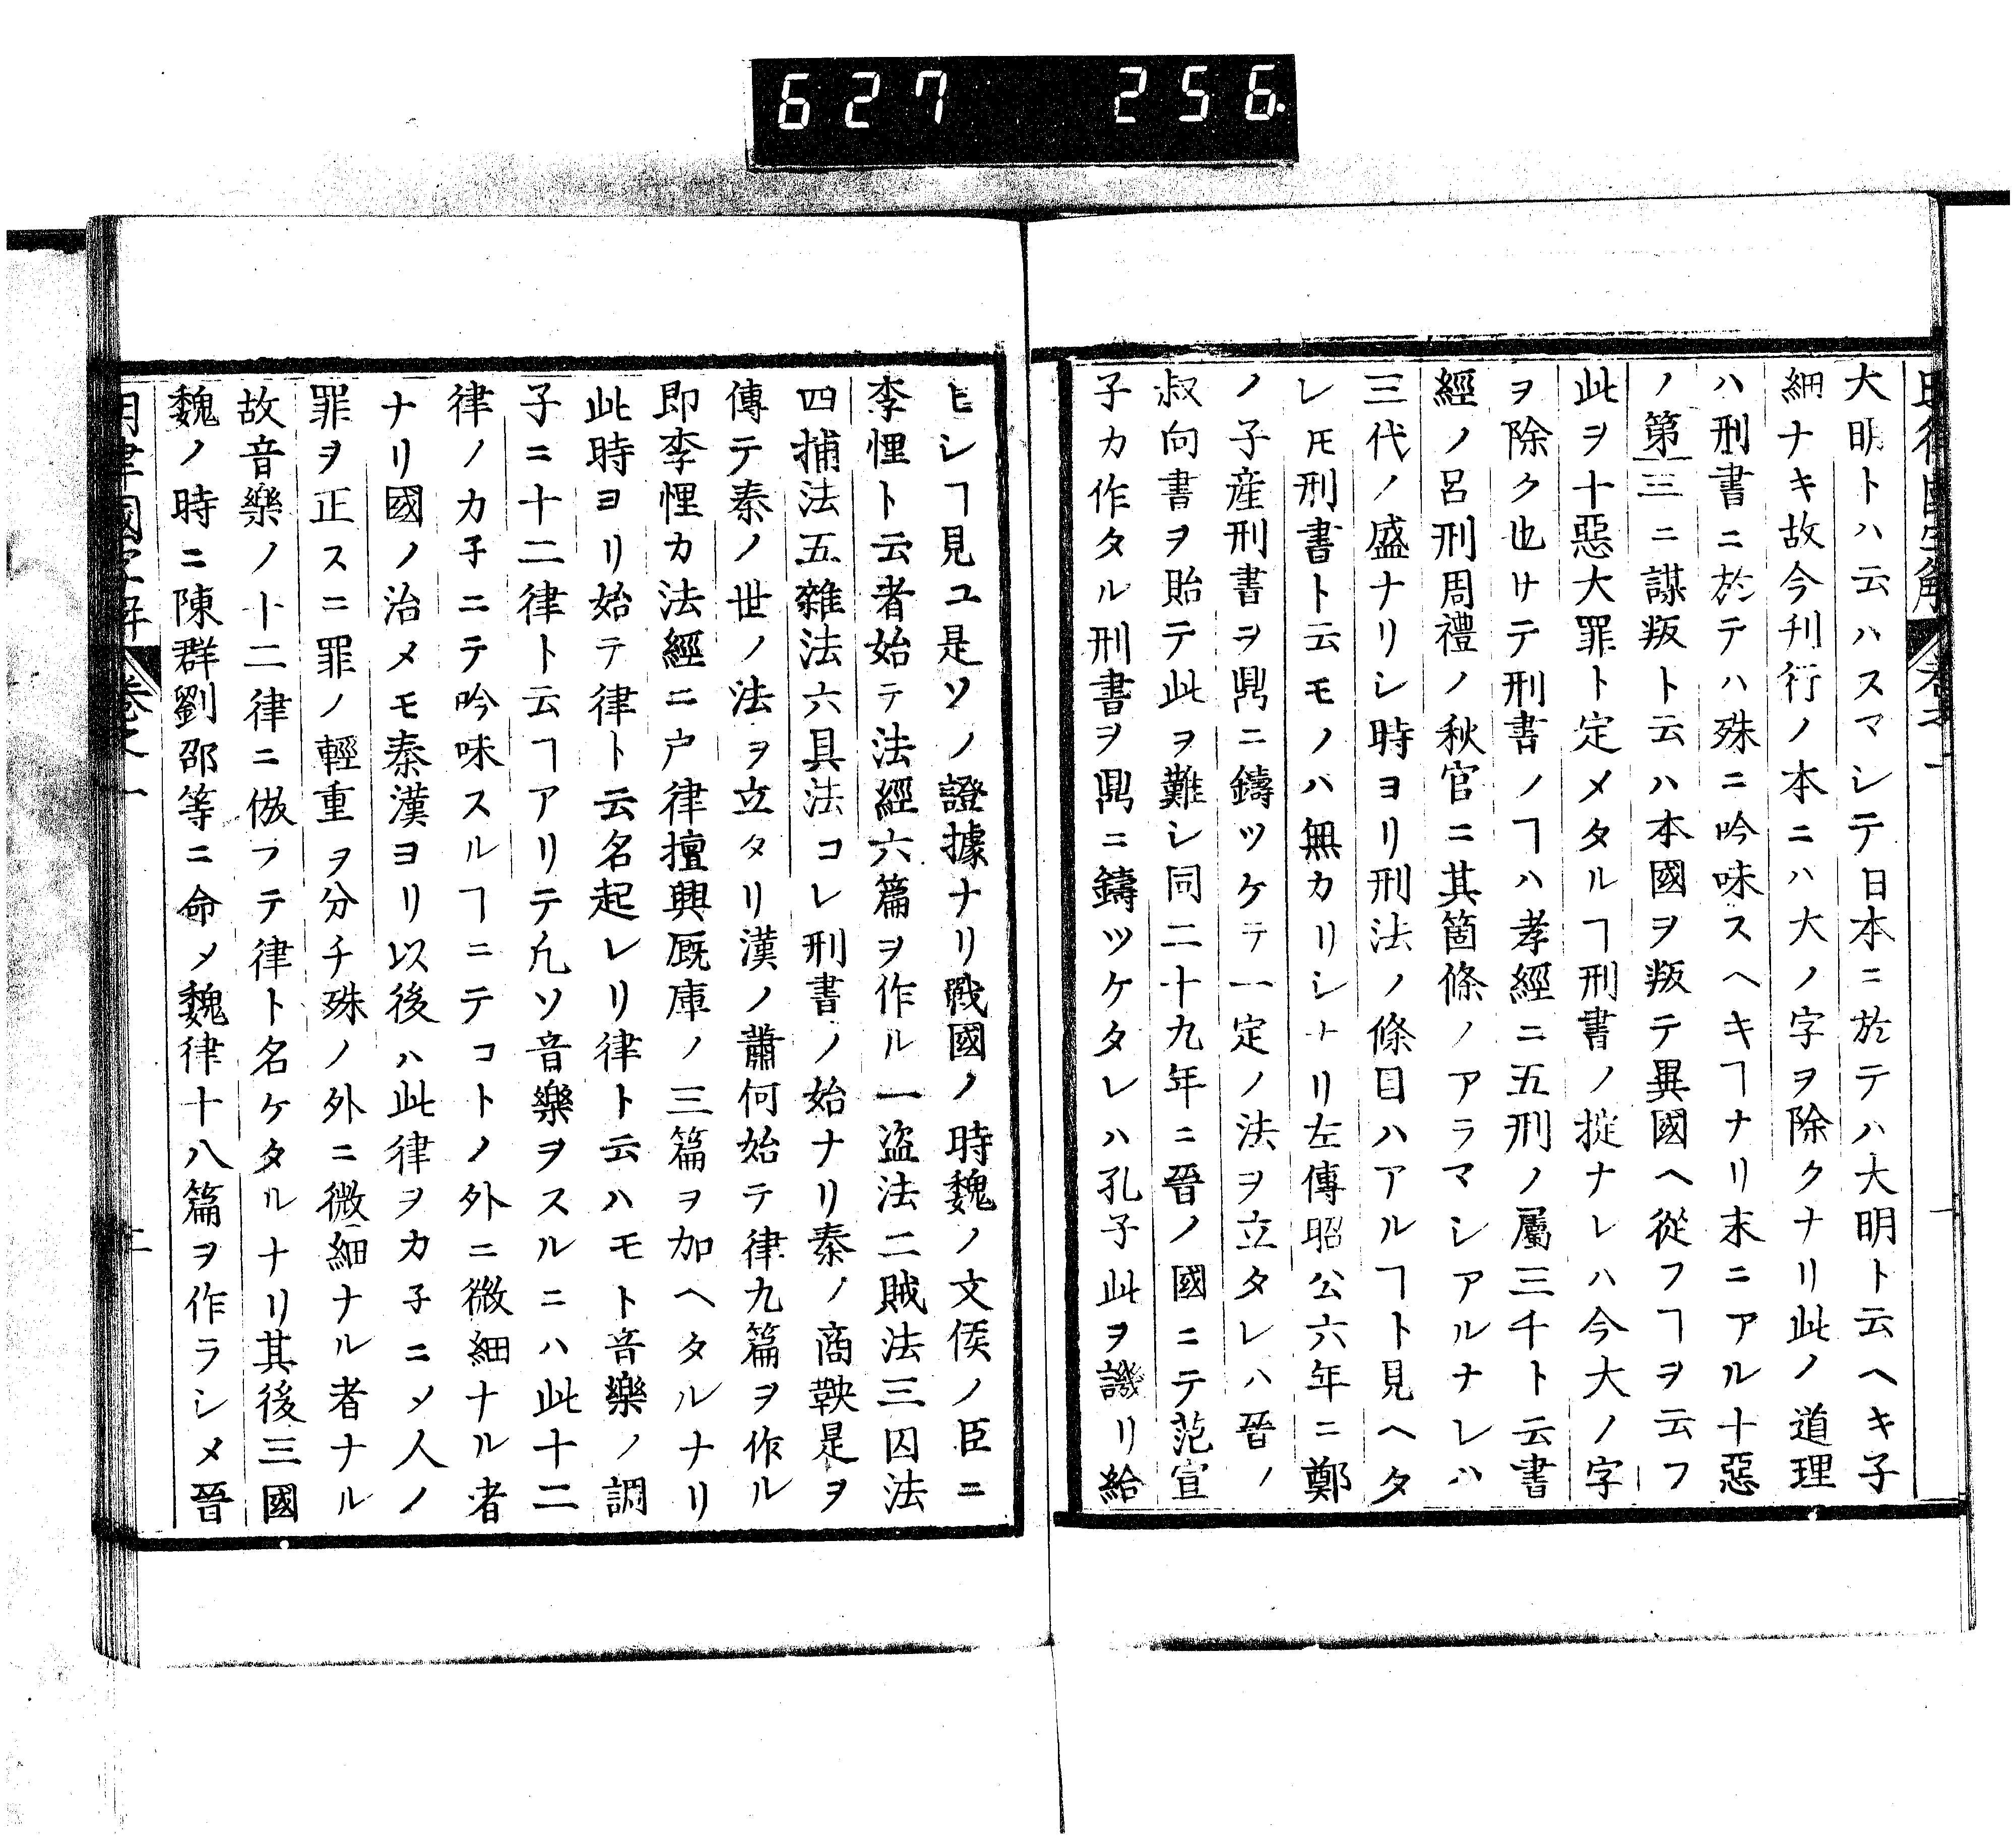 627 256
大明トハ云ハスマシテ日本ニ於テハ大明ト云ヘキ子
細ナキ故今刊行ノ本ニハ大ノ字ヲ除クナリ此ノ道理
ハ刑書ニ於テハ殊ニ吟味スヘキヿナリ末ニアル十惡
ノ第三ニ謀叛ト云ハ本國ヲ叛テ異國ヘ從フヿヲ云フ
此ヲ十惡大罪ト定メタルヿ刑書ノ掟ナレハ今大ノ字
ヲ除ク也サテ刑書ノヿハ孝經ニ五刑ノ屬三千ト云書
經ノ呂刑周禮ノ秋官ニ其箇條ノアラマシアルナレハ
三代ノ盛ナリシ時ヨリ刑法ノ條目ハアルヿト見ヘタ
レ𪜈刑書ト云モノハ無カリシナリ左傳昭公六年ニ鄭
ノ子産刑書ヲ鼎ニ鑄ツケテ一定ノ法ヲ立タレハ晉ノ
叔向書ヲ貽テ此ヲ難シ同二十九年ニ晉ノ國ニテ范宣
子カ作タル刑書ヲ鼎ニ鑄ツケタレハ孔子此ヲ譏リ給
ヒシヿ見ユ是ソノ證據ナリ戰國ノ時魏ノ文侯ノ臣ニ
李悝ト云者始テ法經六篇ヲ作ル一盜法二賊法三囚法
四捕法五雜法六具法コレ刑書ノ始ナリ秦ノ商鞅是ヲ
傳テ秦ノ世ノ法ヲ立タリ漢ノ蕭何始テ律九篇ヲ作ル
即李悝カ法經ニ户律擅興厩庫ノ三篇ヲ加ヘタルナリ
此時ヨリ始テ律ト云名起レリ律ト云ハモト音樂ノ調
子ニ十二律ト云ヿアリテ凢ソ音樂ヲスルニハ此十二
律ノカ子ニテ吟味スルヿニテコトノ外ニ微細ナル者
ナリ國ノ治メモ秦漢ヨリ以後ハ此律ヲカ子ニメ人ノ
罪ヲ正スニ罪ノ輕重ヲ分チ殊ノ外ニ微細ナル者ナル
故音樂ノ十二律ニ倣フテ律ト名ケタルナリ其後三國
魏ノ時ニ陳群劉邵等ニ命メ魏律十八篇ヲ作ラシメ晉
明律國字解 卷之一 二